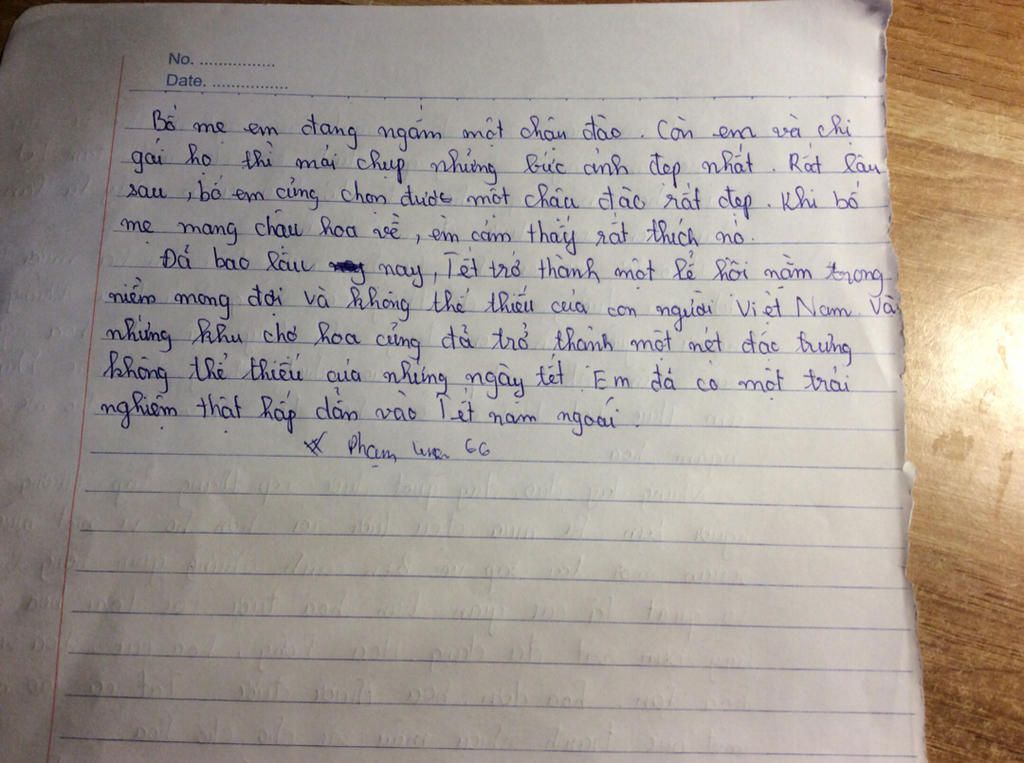 No. ................
Date. ................
Bố mẹ em đang ngắm một chậu đào. Còn em và chị
gái họ thì mải chụp những bức ảnh đẹp nhất. Rất lâu
sau, bố em cũng chọn được một chậu đào rất đẹp. Khi bố
mẹ mang chậu hoa về, em cảm thấy rất thích nó.
Đã bao lâu nay, Tết trở thành một lễ hội nằm trong
niềm mong đợi và không thể thiếu của con người Việt Nam. Và
những khu chợ hoa cũng đã trở thành một nét đặc trưng
không thể thiếu của những ngày tết. Em đã có một trải
nghiệm thật hấp dẫn vào Tết năm ngoái.
Phạm 6G